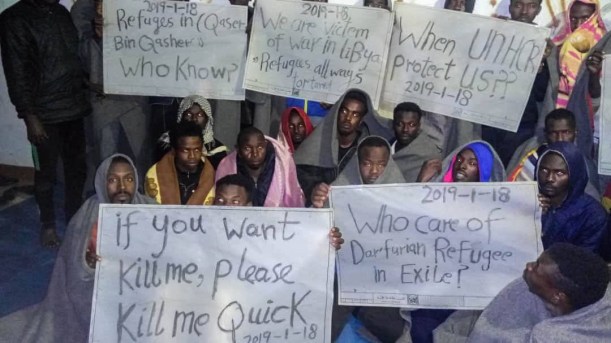 Refuges in (Qaser
Bin Qasher)
Who Know?
2019-1-18
2019-1-18
We are victem
of war in Libya
Refugees all ways
tortered
2019-1-18
When UNHCR
Protect US??
2019-1-18
if you Want
Kill me, please
Kill me Quick
2019-1-18
2019-1-18
Who care of
Darfurian Refugee
in Exile?